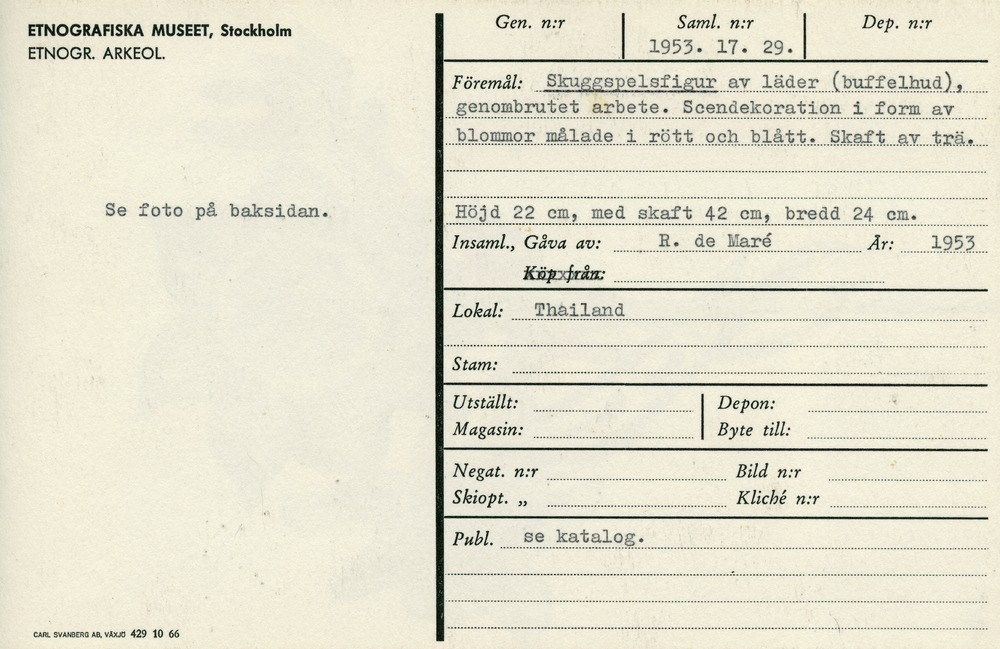 ETNOGRAFISKA MUSEET, Stockholm
ETNOGR. ARKEOL.
Se foto på baksidan.
CARL SVANBERG AB, VÄXJÖ 429 10 66
Gen. n:r
Saml. n:r
1953. 17. 29.
Dep. n:r
Föremål: Skuggspelsfigur av läder (buffelhud),
genombrutet arbete. Scendekoration i form av
blommor målade i rött och blått. Skaft av trä.
Höjd 22 cm, med skaft 42 cm, bredd 24 cm.
Insaml., Gåva av: R. de Maré År: 1953
Köp från:
Lokal: Thailand
Stam:
Utställt:
Depon:
Magasin:
Byte till:
Negat. n:r
Bild n:r
Skiopt. „
Kliché n:r
Publ. se katalog.